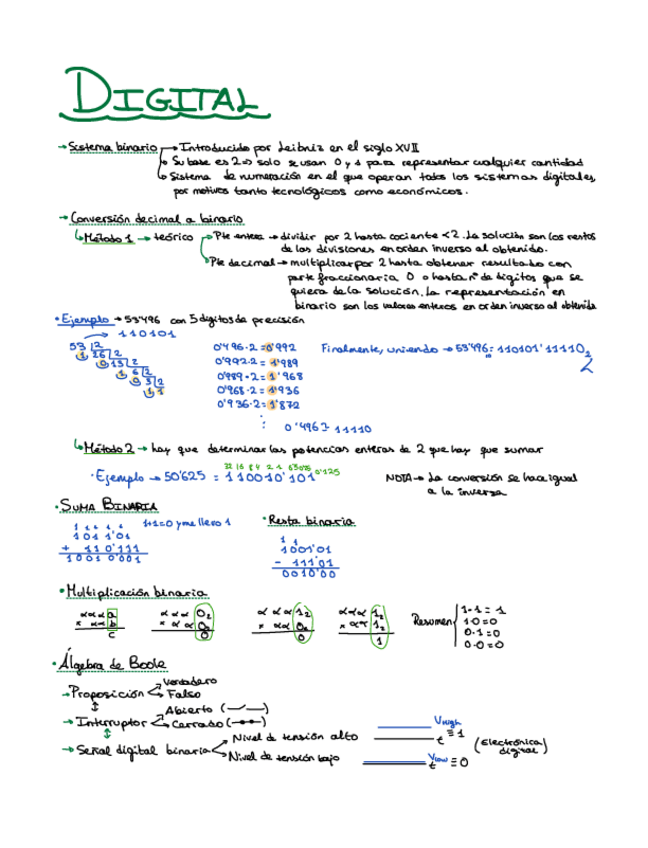 DIGITAL
→ Sistema binario → Introducido por Leibniz en el siglo XVII
→ Su base es 2 => solo se usan 0 y 1 para representar cualquier cantidad
→ Sistema de numeración en el que operan todos los sistemas digitales,
por motivos tanto tecnológicos como económicos.
→ Conversión decimal a binario
↳ Método 1 → teórico → Pte entera → dividir por 2 hasta cociente < 2. La solución son los restos
de las divisiones en orden inverso al obtenido.
→ Pte decimal → multiplicar por 2 hasta obtener resultado con
parte fraccionaria 0 o hasta nº de dígitos que se
quiera de la solución. La representación en
binario son los valores enteros en orden inverso al obtenido
• Ejemplo → 53'496 con 5 digitos de precisión
110101
53 |2
1 26 |2
0 13 |2
1 6 |2
0 3 |2
1 1
0'496·2=0'992
0'992·2=1'989
0'989·2=1'968
0'968·2=1'936
0'936·2=1'872
Finalmente, uniendo → 53'496 = 110101'11110₂
2
0'496 11110
↳ Método 2 → hay que determinar las potencias enteras de 2 que hay que sumar
32 16 8 4 2 1 0'125
· Ejemplo → 50'625 = 110010'101
NOTA → La conversión se hace igual
a la inversa
• SUMA BINARIA
1+1=0 y me llevo 1
1 1 1 1 1
101 1'01
+ 110'111
1001 0'001
• Resta binaria
1 1
1001'01
- 111'01
0010'00
• Multiplicación binaria
α α α a
× α α b
c
α α α 0₂
× α α 0₂
0
α α α 1₂
× α α 0₂
0
α α α 1₂
× α α 1₂
1
Resumen
1·1 = 1
1·0 = 0
0·1 = 0
0·0 = 0
• Álgebra de Boole
→ Proposición
Verdadero
Falso
→ Interruptor
Abierto
Cerrado
→ Señal digital binaria
Nivel de tensión alto
Nivel de tensión bajo
Vhigh
t ≡ 1
Vlow
t ≡ 0
(Electrónica
digital)